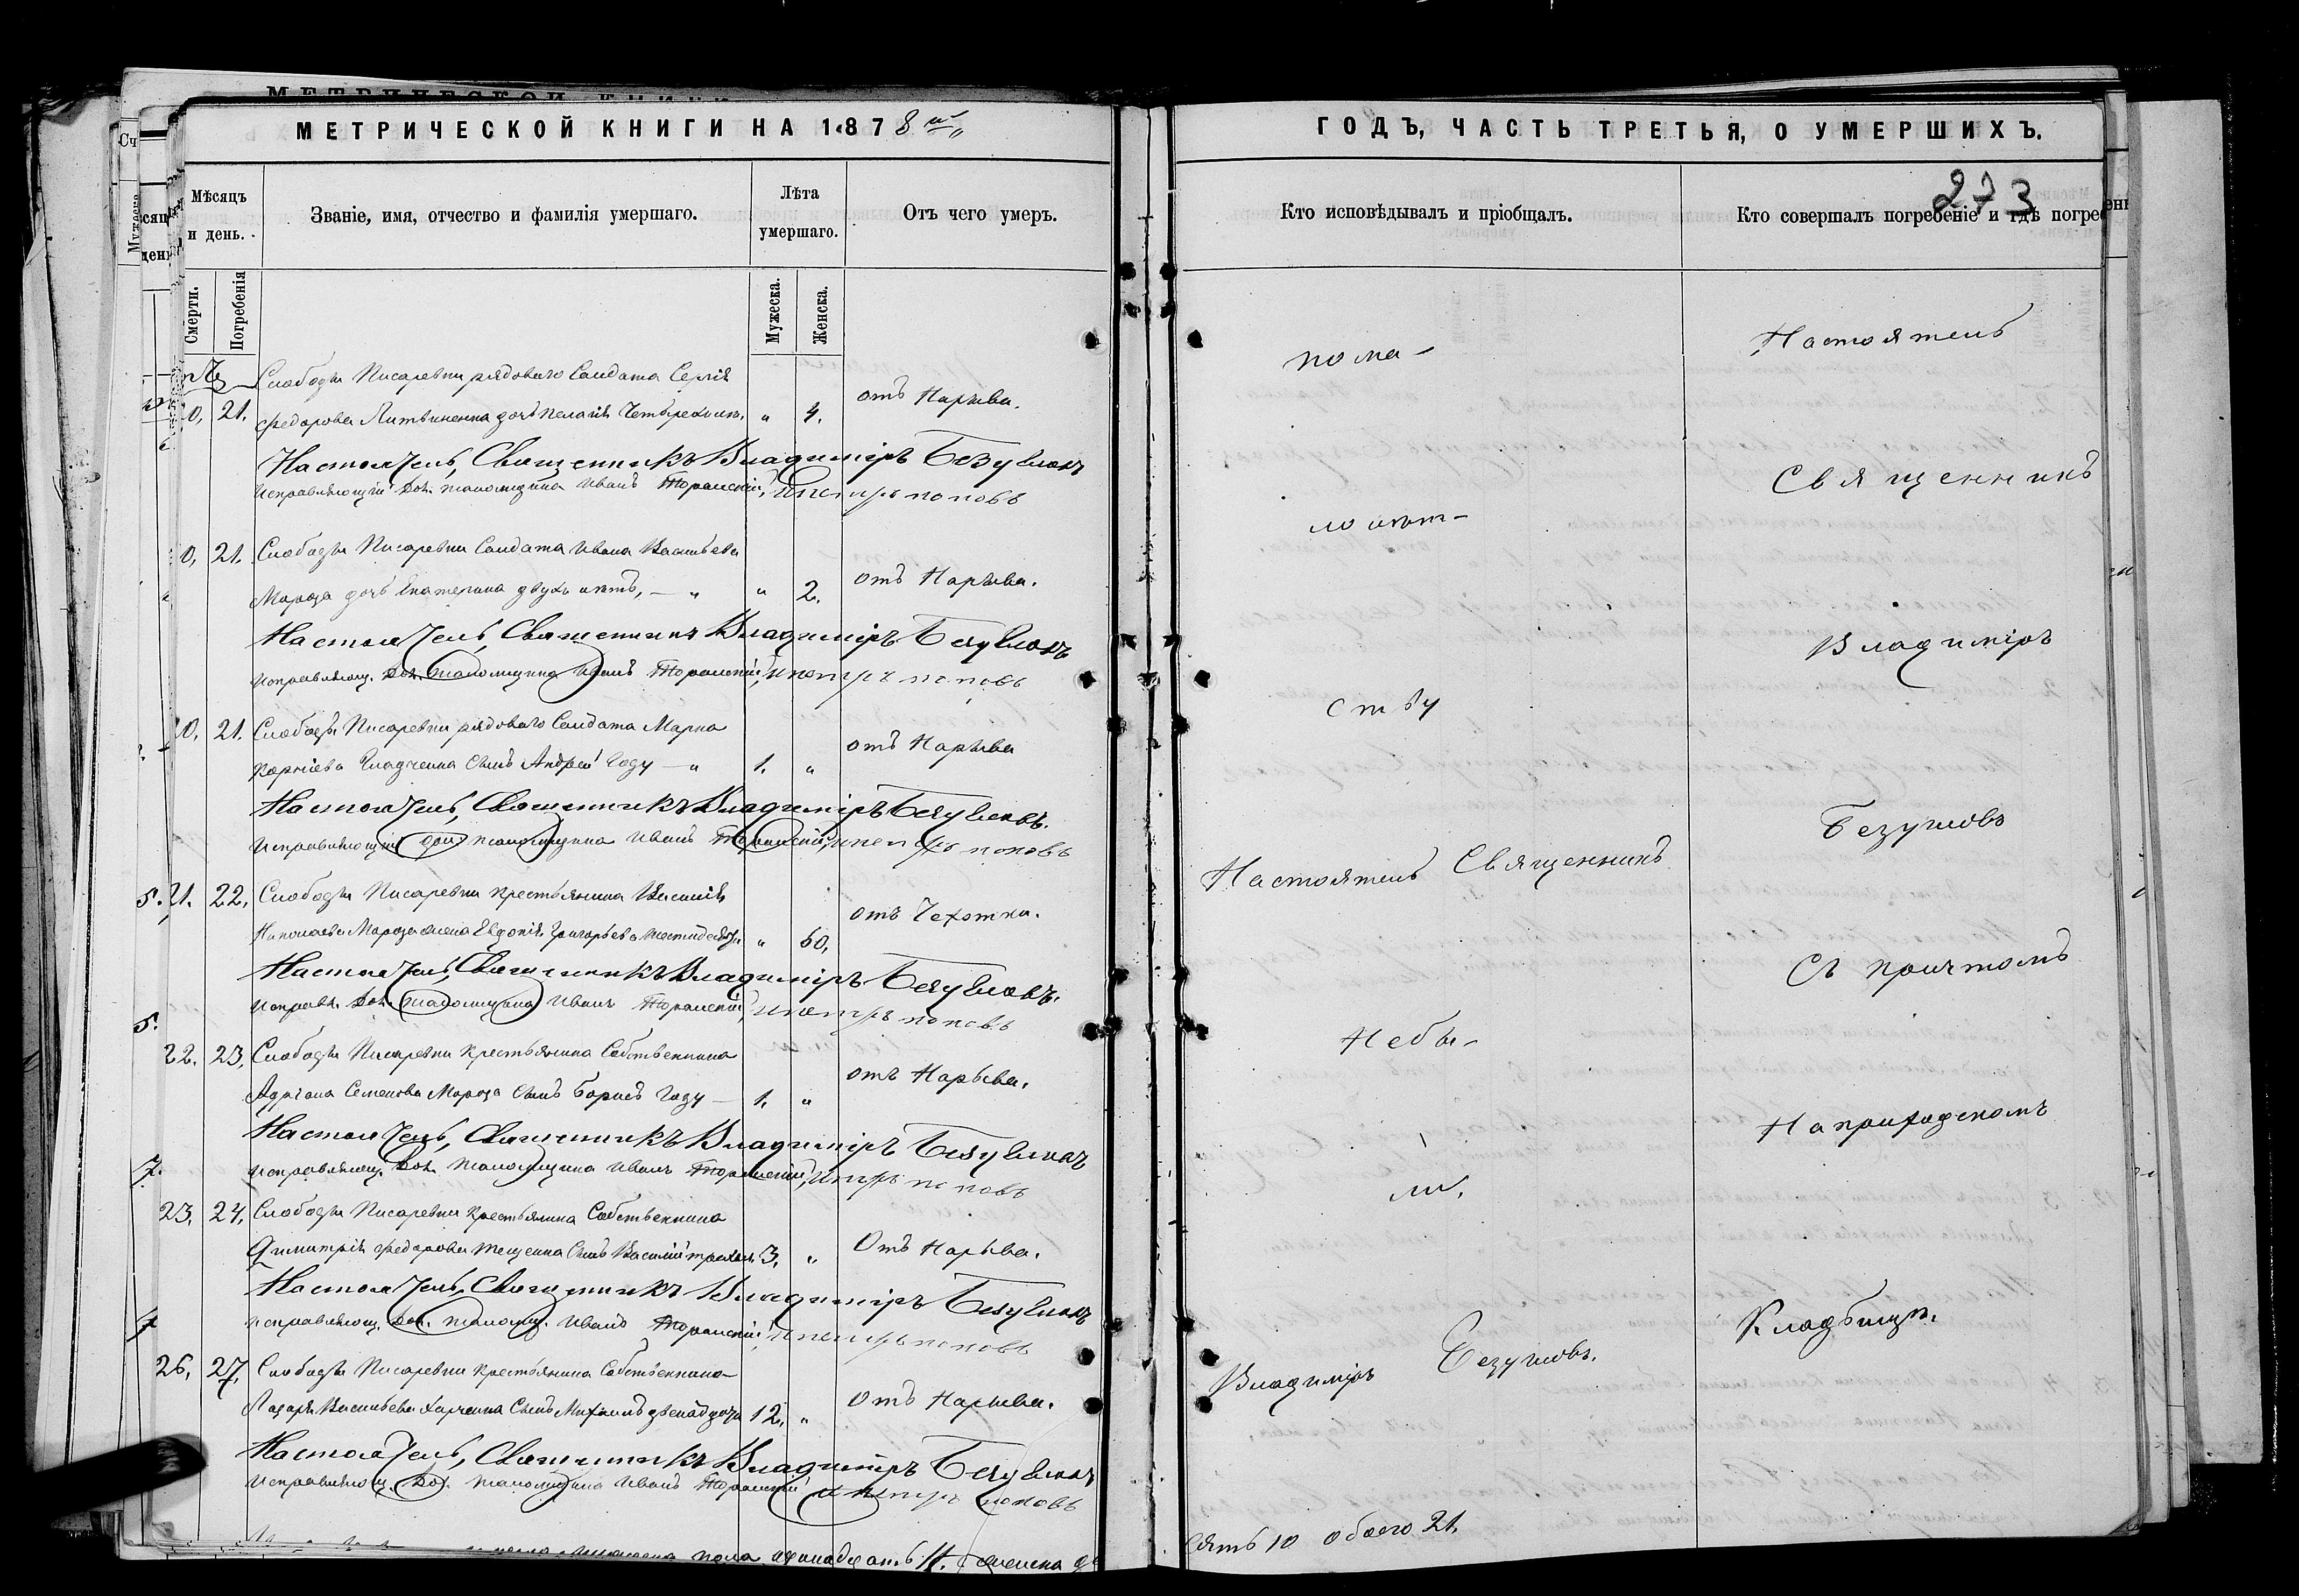 МЕТРИЧЕСКОЙ КНИГИ НА 1878
Мѣсяцъ и день.
Званіе, имя, отчество и фамилія умершаго.
Лѣта умершаго.
Отъ чего умеръ.
Смерти.
Погребенія
Мужеска.
Женска.
Слободы Писаревки рядового Солдата Сергія
21. Федорова Литвиненка дочь Пелагія " 4. отъ Нарыва.
Настоятель, Священникъ Владиміръ Безугловъ
Исправляющій дол. псаломщика Иванъ и Петръ Поповъ
21. Слободы Писаревки Солдата Ивана Васильева
Мороза дочь Екатерина двухъ лѣтъ, — " " 2. отъ Нарыва.
Настоятель, Священникъ Владиміръ Безугловъ
Исправляющ. дол. псаломщика Иванъ и Петръ Поповъ
21. Слободы Писаревки рядового Солдата Марка
Корніева Гладченка Сынъ Андрей Году — " 1. " отъ Нарыва
Настоятель, Священникъ Владиміръ Безугловъ.
Исправляющій дол. псаломщика Иванъ и Петръ Поповъ
21. 22. Слободы Писаревки крестьянина Василія
Николаева Мороза жена Евдокія Григорьева " 60. отъ Чахотки.
Настоятель, Священникъ Владиміръ Безугловъ.
Исправл. дол. псаломщика Иванъ и Петръ Поповъ
22. 23. Слободы Писаревки крестьянина Собственника
Адріана Семенова Мороза Сынъ Борисъ Году — 1. " отъ Нарыва.
Настоятель, Священникъ Владиміръ Безугловъ
Исправляющ. дол. псаломщика Иванъ и Петръ Поповъ
23. 24. Слободы Писаревки Крестьянина Собственника
Димитрія Федорова Сынъ Василій 3. " Отъ Нарыва.
Настоятель, Священникъ Владиміръ Безугловъ
Исправляющ. дол. псаломщ. Иванъ и Петръ Поповъ
26, 27, Слободы Писаревки Крестьянина Собственника
Лазаря Васильева Харченка Сынъ Михаилъ 12. " Отъ Нарыва.
Настоятель, Священникъ Владиміръ Безугловъ
Исправляющ. дол. псаломщика Иванъ и Петръ Поповъ
ГОДЪ, ЧАСТЬ ТРЕТЬЯ, О УМЕРШИХЪ.
273
Кто исповѣдывалъ и пріобщалъ.
Кто совершалъ погребеніе и гдѣ погре
по ма-
лолѣт-
ству
Настоятель Священникъ
Небы-
ли.
Владиміръ Безугловъ.
Настоятель
Священникъ
Владиміръ
Безугловъ
Съ причтомъ
На приходскомъ
Кладбищѣ.
сять 10 обоего 21.